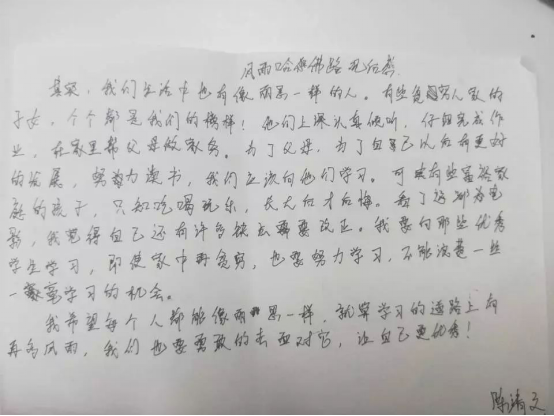 风雨哈佛路观后感
其实，我们生活中也有像丽思一样的人。有些贫穷人家的
子女，个个都是我们的榜样！他们上课认真倾听，仔细完成作
业，在家里帮父母做家务。为了父母，为了自己以后有更好
的发展，努力读书，我们应该向他们学习。可是有些富裕家
庭的孩子，只知吃喝玩乐，长大后才后悔。看了这部电
影，我觉得自己还有许多缺点需要改正。我要向那些优秀
学生学习，即使家中再贫穷，也要努力学习，不能放弃一些
学习的机会。
我希望每个人都能像丽思一样，就算学习的道路上有
再多风雨，我们也要勇敢的去面对它，让自己更优秀！
陈靖文